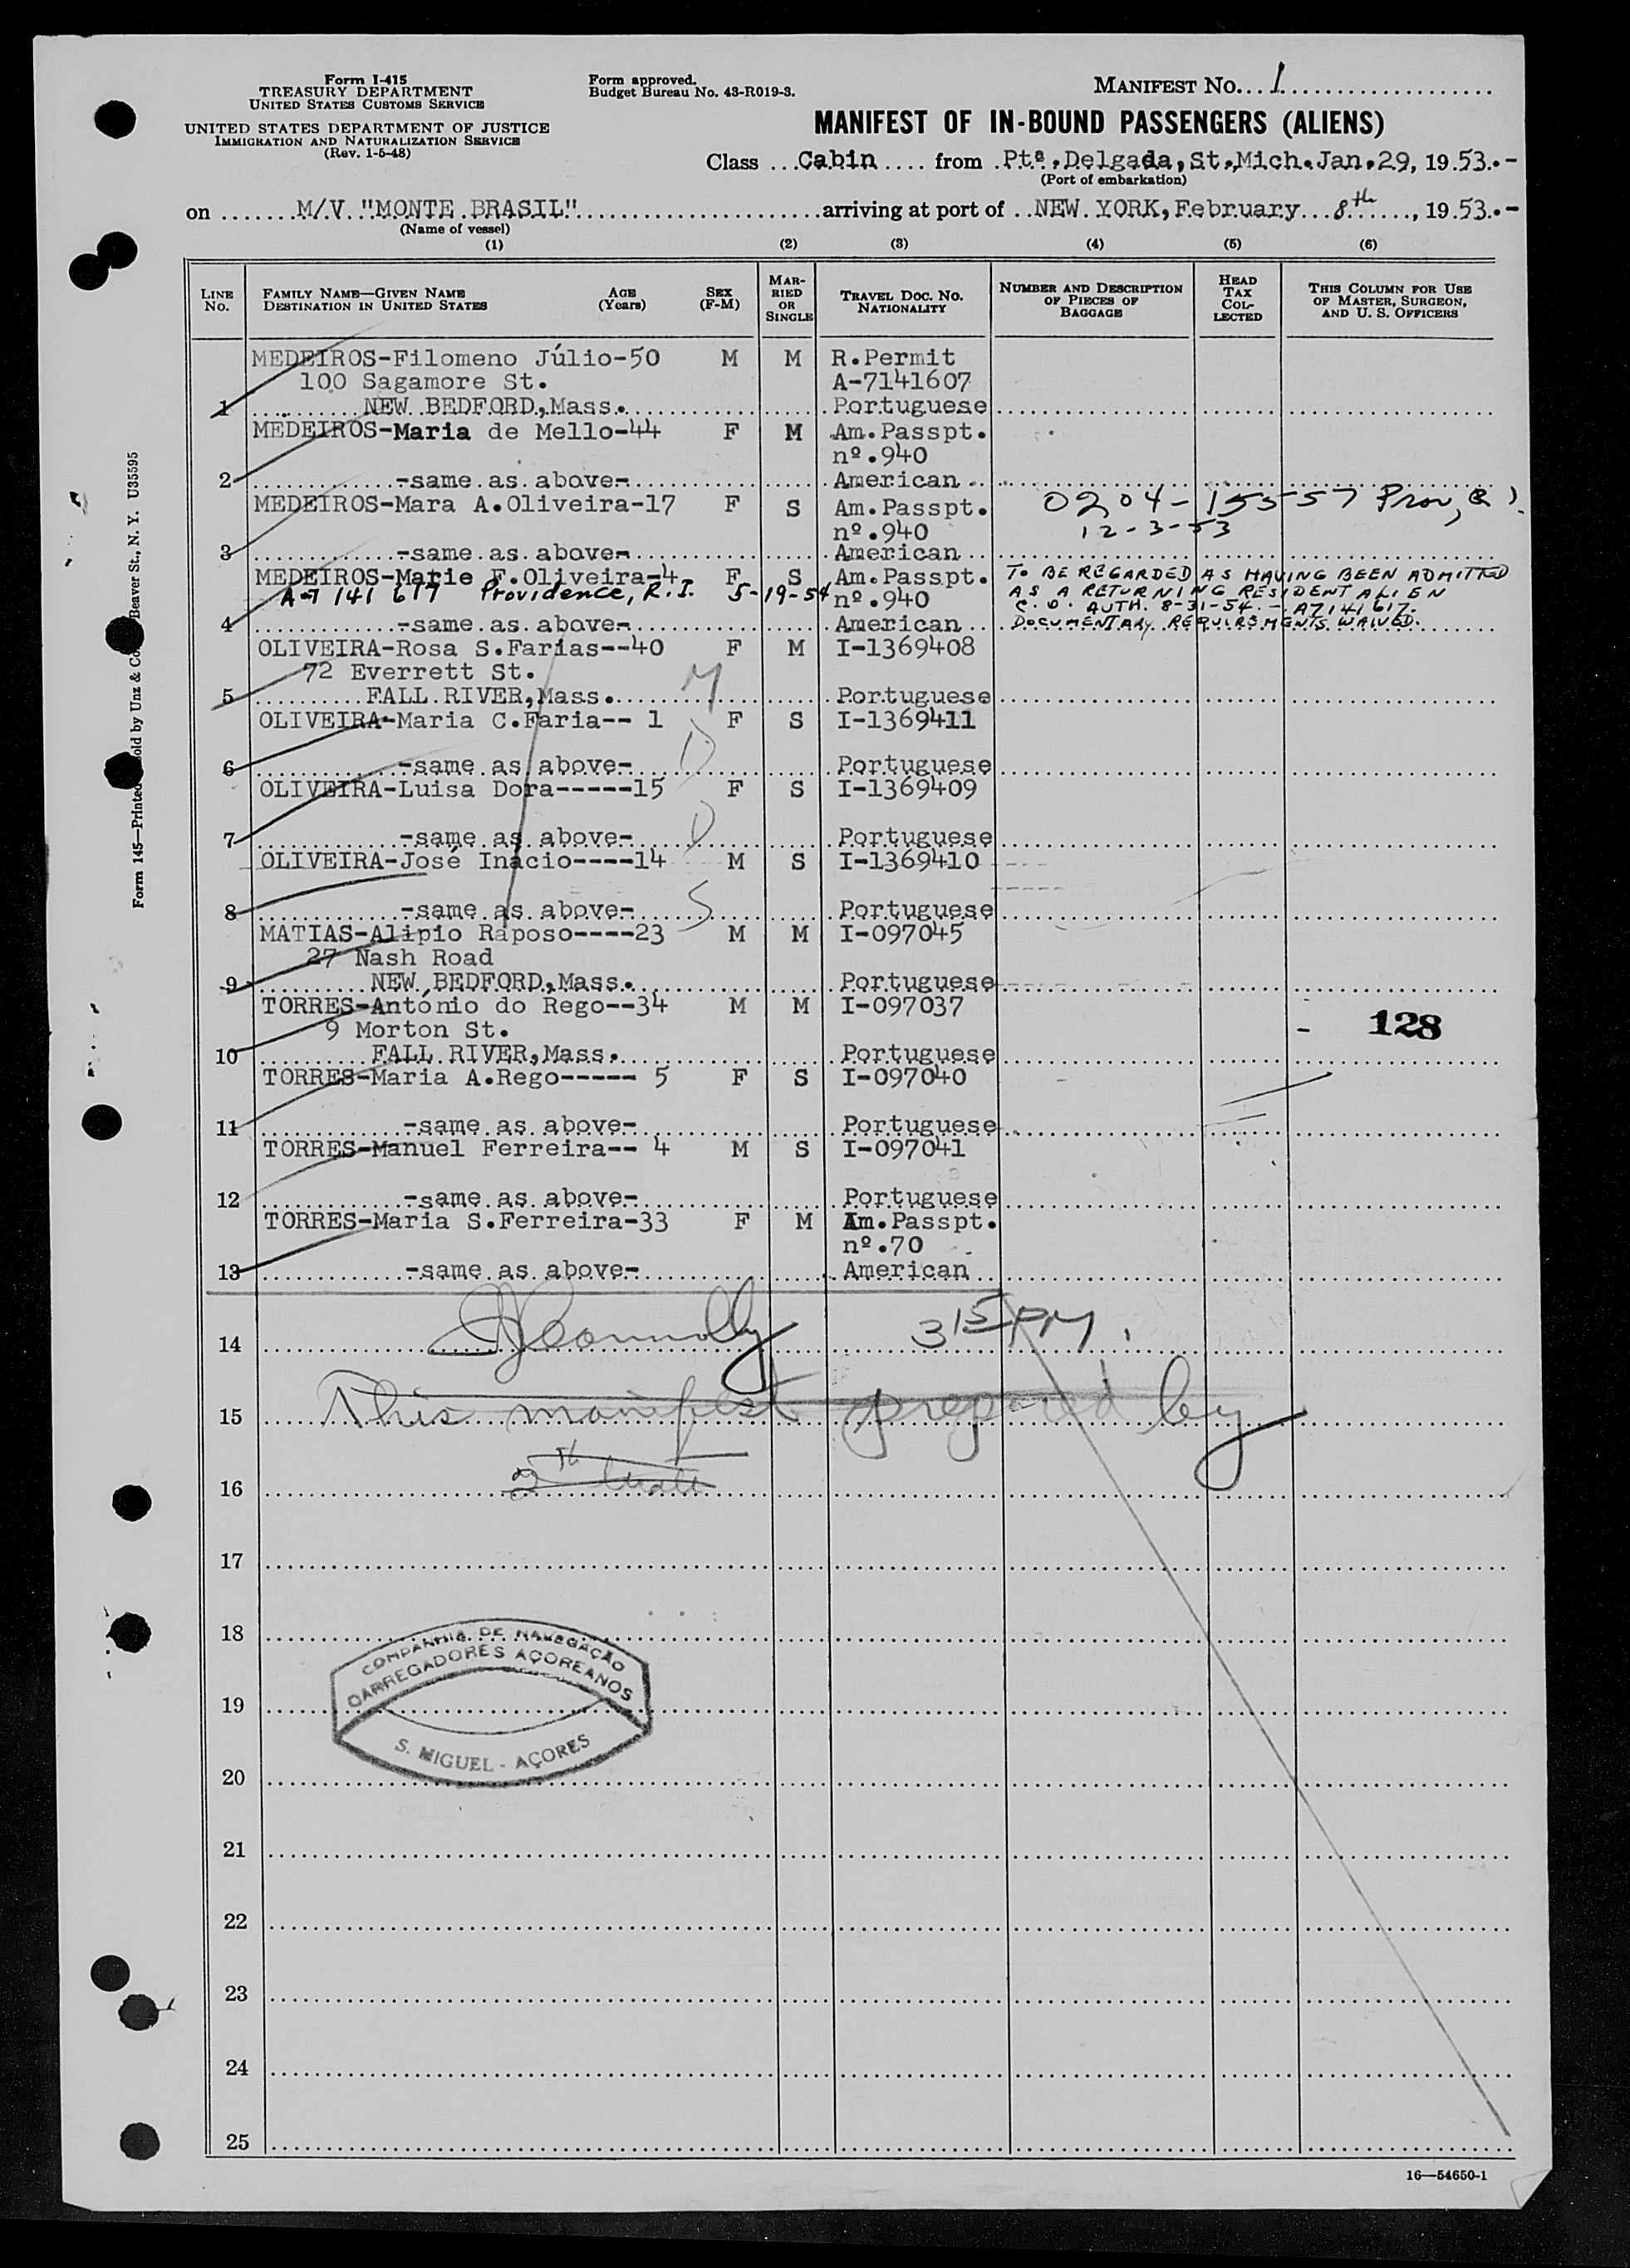 Form I-415
TREASURY DEPARTMENT
UNITED STATES CUSTOMS SERVICE
UNITED STATES DEPARTMENT OF JUSTICE
IMMIGRATION AND NATURALIZATION SERVICE
(Rev. 1-5-48)
Form approved.
Budget Bureau No. 43-R019-3.
MANIFEST No. 1
MANIFEST OF IN-BOUND PASSENGERS (ALIENS)
Class Cabin from Ptª.Delgada,St.Mich.Jan.29, 1953.-
(Port of embarkation)
on M/V "MONTE BRASIL" arriving at port of NEW YORK,February 8th, 1953.-
(Name of vessel)
(1) (2) (3) (4) (5) (6)
LINE No. FAMILY NAME—GIVEN NAME DESTINATION IN UNITED STATES AGE (Years) SEX (F-M) MARRIED OR SINGLE TRAVEL DOC. NO. NATIONALITY NUMBER AND DESCRIPTION OF PIECES OF BAGGAGE HEAD TAX COLLECTED THIS COLUMN FOR USE OF MASTER, SURGEON, AND U. S. OFFICERS
MEDEIROS-Filomeno Júlio-50 M M R.Permit
100 Sagamore St. A-7141607
1 NEW BEDFORD,Mass. Portuguese
MEDEIROS-Maria de Mello-44 F M Am.Passpt.
nº.940
2 -same as above- American
MEDEIROS-Mara A.Oliveira-17 F S Am.Passpt. 0204-155557 Prov,
nº.940 12-3-53
3 -same as above- American
MEDEIROS-Marie F.Oliveira-4 F S Am.Passpt. TO BE REGARDED AS HAVING BEEN ADMITTED
A-7 141 617 Providence, R.I. 5-19-54 nº.940 AS A RETURNING RESIDENT ALIEN
C.O. AUTH. 8-31-54. - A7141617.
4 -same as above- American DOCUMENTARY REQUIREMENTS WAIVED.
OLIVEIRA-Rosa S.Farias--40 F M I-1369408
72 Everrett St.
5 FALL RIVER,Mass. M Portuguese
OLIVEIRA-Maria C.Faria-- 1 F S I-1369411
D
6 -same as above- Portuguese
OLIVEIRA-Luisa Dora-----15 F S I-1369409
7 -same as above- D Portuguese
OLIVEIRA-José Inácio----14 M S I-1369410
8 -same as above- S Portuguese
MATIAS-Alipio Raposo----23 M M I-097045
27 Nash Road
9 NEW BEDFORD,Mass. Portuguese
TORRES-António do Rego--34 M M I-097037
9 Morton St. - 128
10 FALL RIVER,Mass. Portuguese
TORRES-Maria A.Rego----- 5 F S I-097040
11 -same as above- Portuguese
TORRES-Manuel Ferreira-- 4 M S I-097041
12 -same as above- Portuguese
TORRES-Maria S.Ferreira-33 F M Am.Passpt.
nº.70
13 -same as above- American
14 Connolly 3 15 PM.
15 This manifest prepared by
16
17
18
COMPANHIA DE NAVEGAÇÃO
CARREGADORES AÇOREANOS
19
S. MIGUEL - AÇORES
20
21
22
23
24
25
16—54650-1
Form 145—Printed Sold by Unz & Co Beaver St., N. Y. U35595